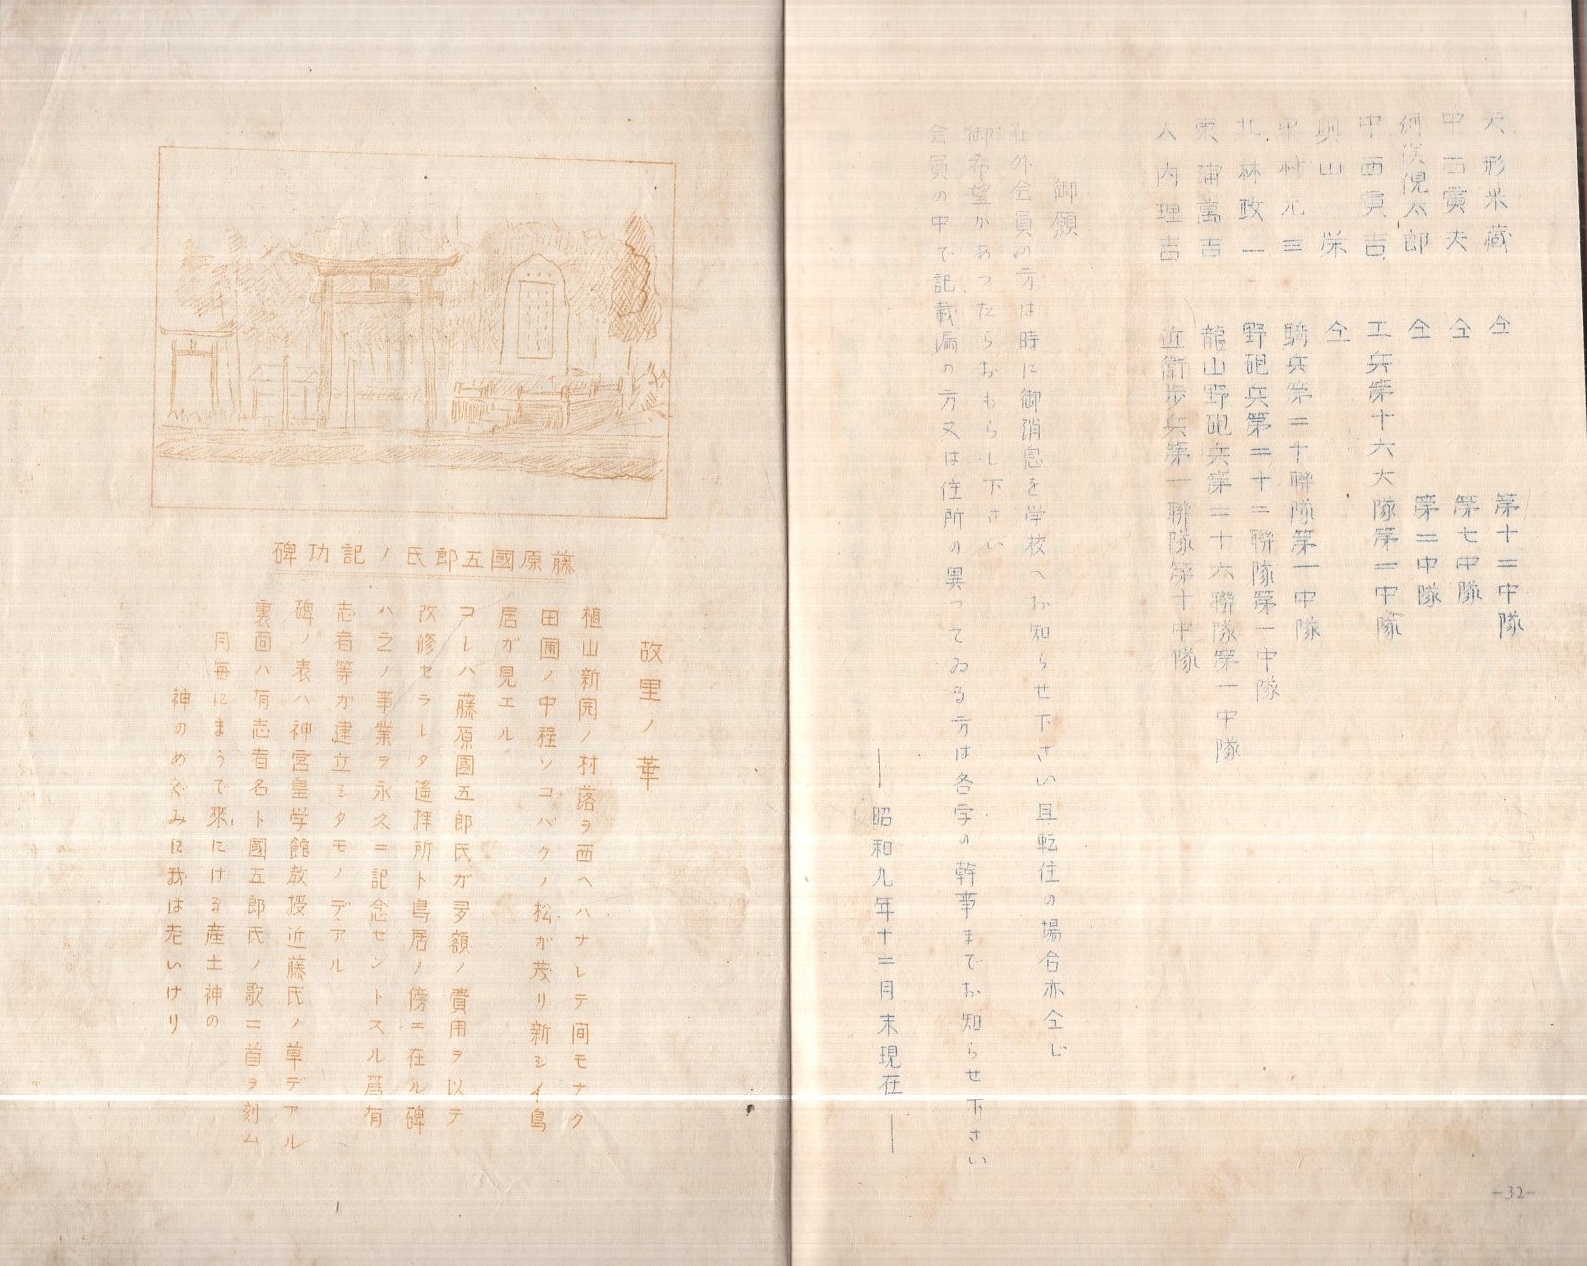 大形米藏 仝 第十二中隊
中西寅夫 仝 第七中隊
俣俔太郎 仝 第二中隊
中西寅吉 工兵第十六大隊第二中隊
奥山栄 仝
中村元三 騎兵第二十聯隊第一中隊
北林政一 野砲兵第二十二聯隊第一中隊
東浦萬吉 龍山野砲兵第二十六聯隊第一中隊
大内理吉 近衛歩兵第一聯隊第十中隊
御願
在外会員の方は時に御消息を学校へお知らせ下さい且転住の場合亦仝じ
御希望があつたらおもらし下さい
会員の中で記載漏の方又は住所の異つてゐる方は各字の幹事までお知らせ下さい
―昭和九年十二月末現在―
-32-
藤原國五郎氏ノ記功碑
故里ノ華
植山新開ノ村落ヲ西ヘハナレテ間モナク
田圃ノ中程ソコバクノ松が茂リ新シイ鳥
居ガ見エル
コレハ藤原國五郎氏ガ多額ノ費用ヲ以テ
改修セラレタ遙拝所ト鳥居ノ傍ニ在ル碑
ハ之ノ事業ヲ永久ニ記念セントスル爲有
志者等が建立シタモノデアル
碑ノ表ハ神宮皇学館教授近藤氏ノ草デアル
裏面ハ有志者名ト國五郎氏ノ歌二首ヲ刻ム
月毎にまうで來にける産土神の
神のめぐみに我は老いけり